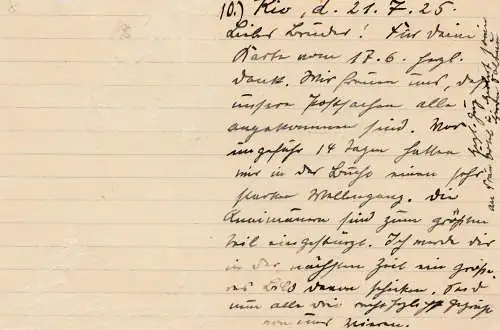 10.) Rio, d. 21.7.25.
Lieber Bruder! Für Deine
Karte vom 17.6. herzl.
Dank. Wir freuen uns, daß
unsere Postsachen alle
angekommen sind. Vor
ungefähr 14 Tagen hatten
wir in der Bucht einen sehr
starken Wellengang. Die
Kaimauern sind zum größten
Teil eingestürzt. Ich werde dir
in der nächsten Zeit ein größe-
res Bild davon schicken. Seid
nun alle drei recht herzlich gegrüßt
von uns